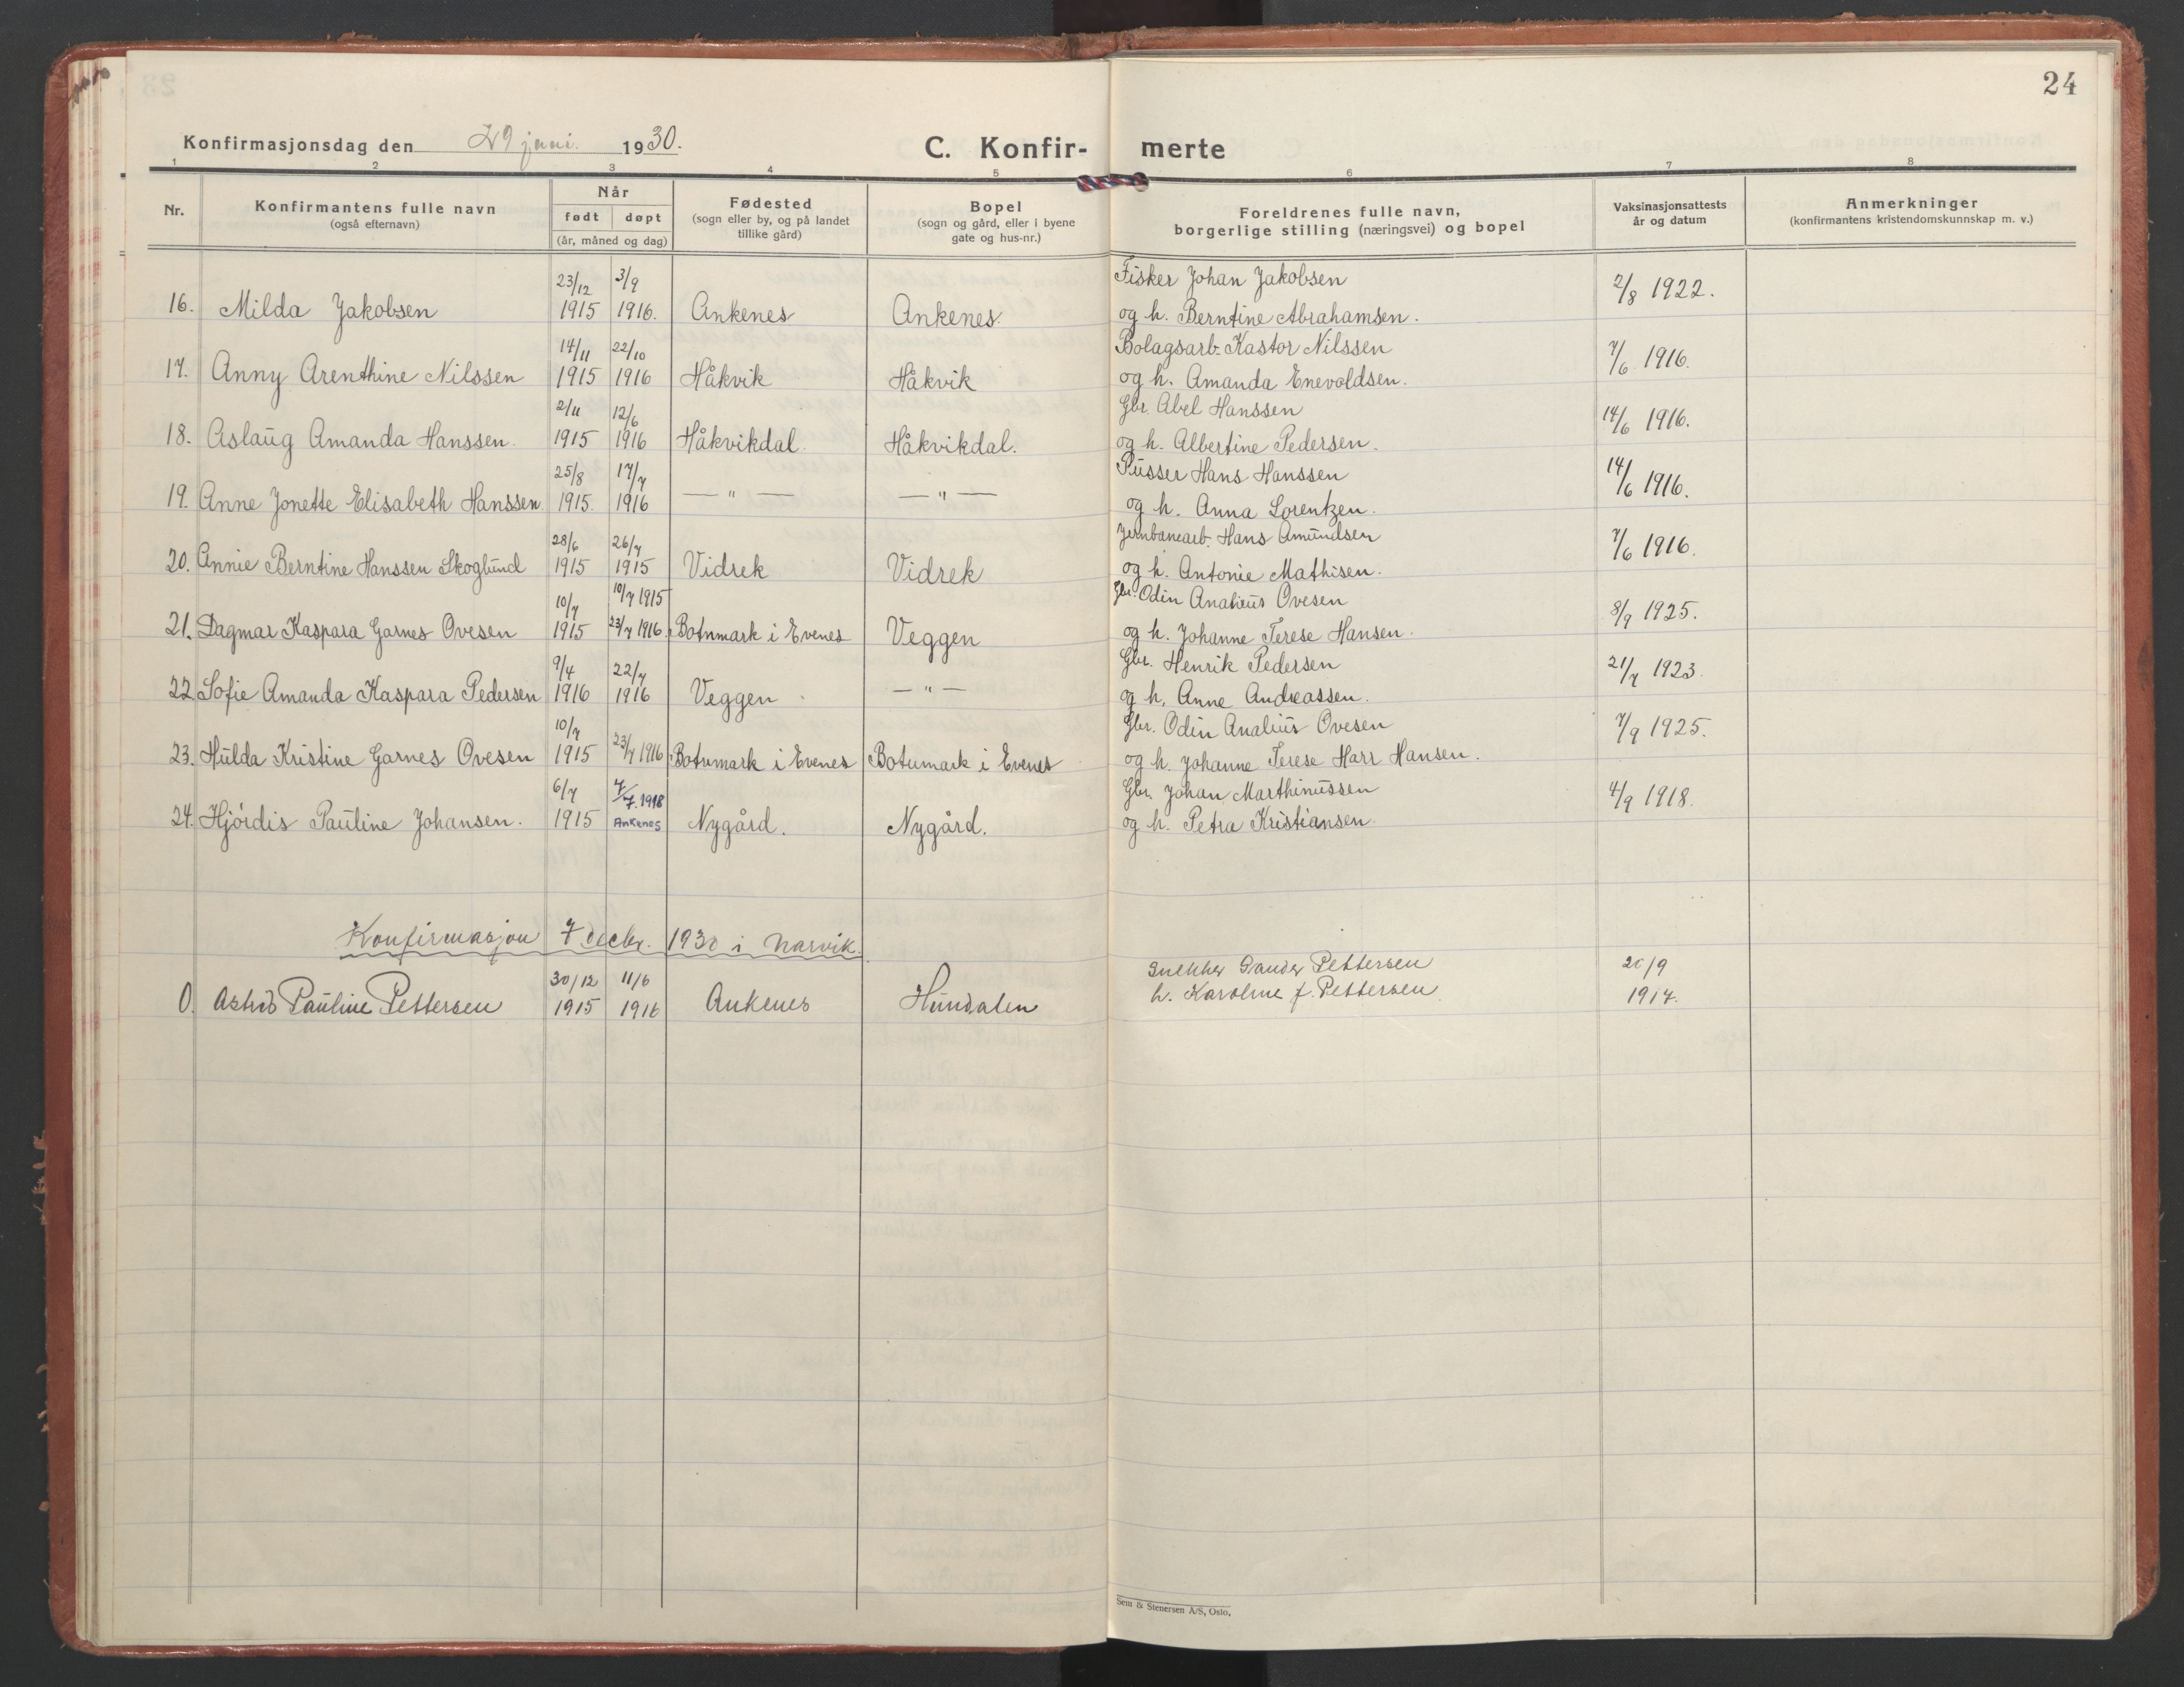 24
Konfirmasjonsdag den 29 juni. 1930. C. Konfir- merte
1 2 3 4 5 6 7 8
Nr. Konfirmantens fulle navn (også efternavn) Når født døpt (år, måned og dag) Fødested (sogn eller by, og på landet tillike gård) Bopel (sogn og gård, eller i byene gate og hus-nr.) Foreldrenes fulle navn, borgerlige stilling (næringsvei) og bopel Vaksinasjonsattests år og datum Anmerkninger (konfirmantens kristendomskunnskap m. v.)
23/12 3/9 Fisker Johan Jakobsen 2/8 1922.
16. Milda Jakobsen 1915 1916. Ankenes Ankenes. og h. Berntine Abrahamsen.
14/11 22/10 Bolagsarb. Kastor Nilssen 7/6 1916.
17. Anny Arenthine Nilssen 1915 1916 Håkvik Håkvik og h. Amanda Enevoldsen.
2/11 12/6 Gbr. Abel Hanssen 14/6 1916.
18. Aslaug Amanda Hanssen. 1915 1916 Håkvikdal. Håkvikdal. og h. Albertine Pedersen.
25/8 17/7 Pusser Hans Hanssen 14/6 1916.
19. Anne Jonette Elisabeth Hanssen 1915. 1916 — " — — " — og h. Anna Lorentzen.
28/6 26/7 Jernbanearb. Hans Amundsen 7/6 1916.
20. Annie Berntine Hanssen Skoglund 1915 1915 Vidrek Vidrek og h. Antonie Mathisen.
10/7 10/7 1915 Gbr. Odin Analius Ovesen 8/9 1925.
21. Dagmar Kaspara Garnes Ovesen 1915 23/7 1916 Botnmark i Evenes Veggen og h. Johanne Terese Hansen.
9/4 22/7 Gbr. Henrik Pedersen 21/7 1923.
22 Sofie Amanda Kaspara Pedersen 1916 1916 Veggen — " — og h. Anne Andreassen.
10/7 Gbr. Odin Analius Ovesen 7/9 1925.
23. Hulda Kristine Garnes Ovesen 1915 23/7 1916 Botnmark i Evenes Botnmark i Evenes og h. Johanne Terese Harr Hansen.
6/7 7/7. 1918 Gbr. Johan Marthinussen 4/9 1918.
24. Hjördis Pauline Johansen. 1915 Ankenes Nygård. Nygård. og h. Petra Kristiansen.
Konfirmasjon 7 decbr. 1930 i Narvik.
30/12 11/6 Snekker Sander Pettersen 20/9
0. Astrid Pauline Pettersen 1915 1916 Ankenes Hundalen h. Karoline f. Pettersen 1917.
Sem & Stenersen A/S, Oslo.